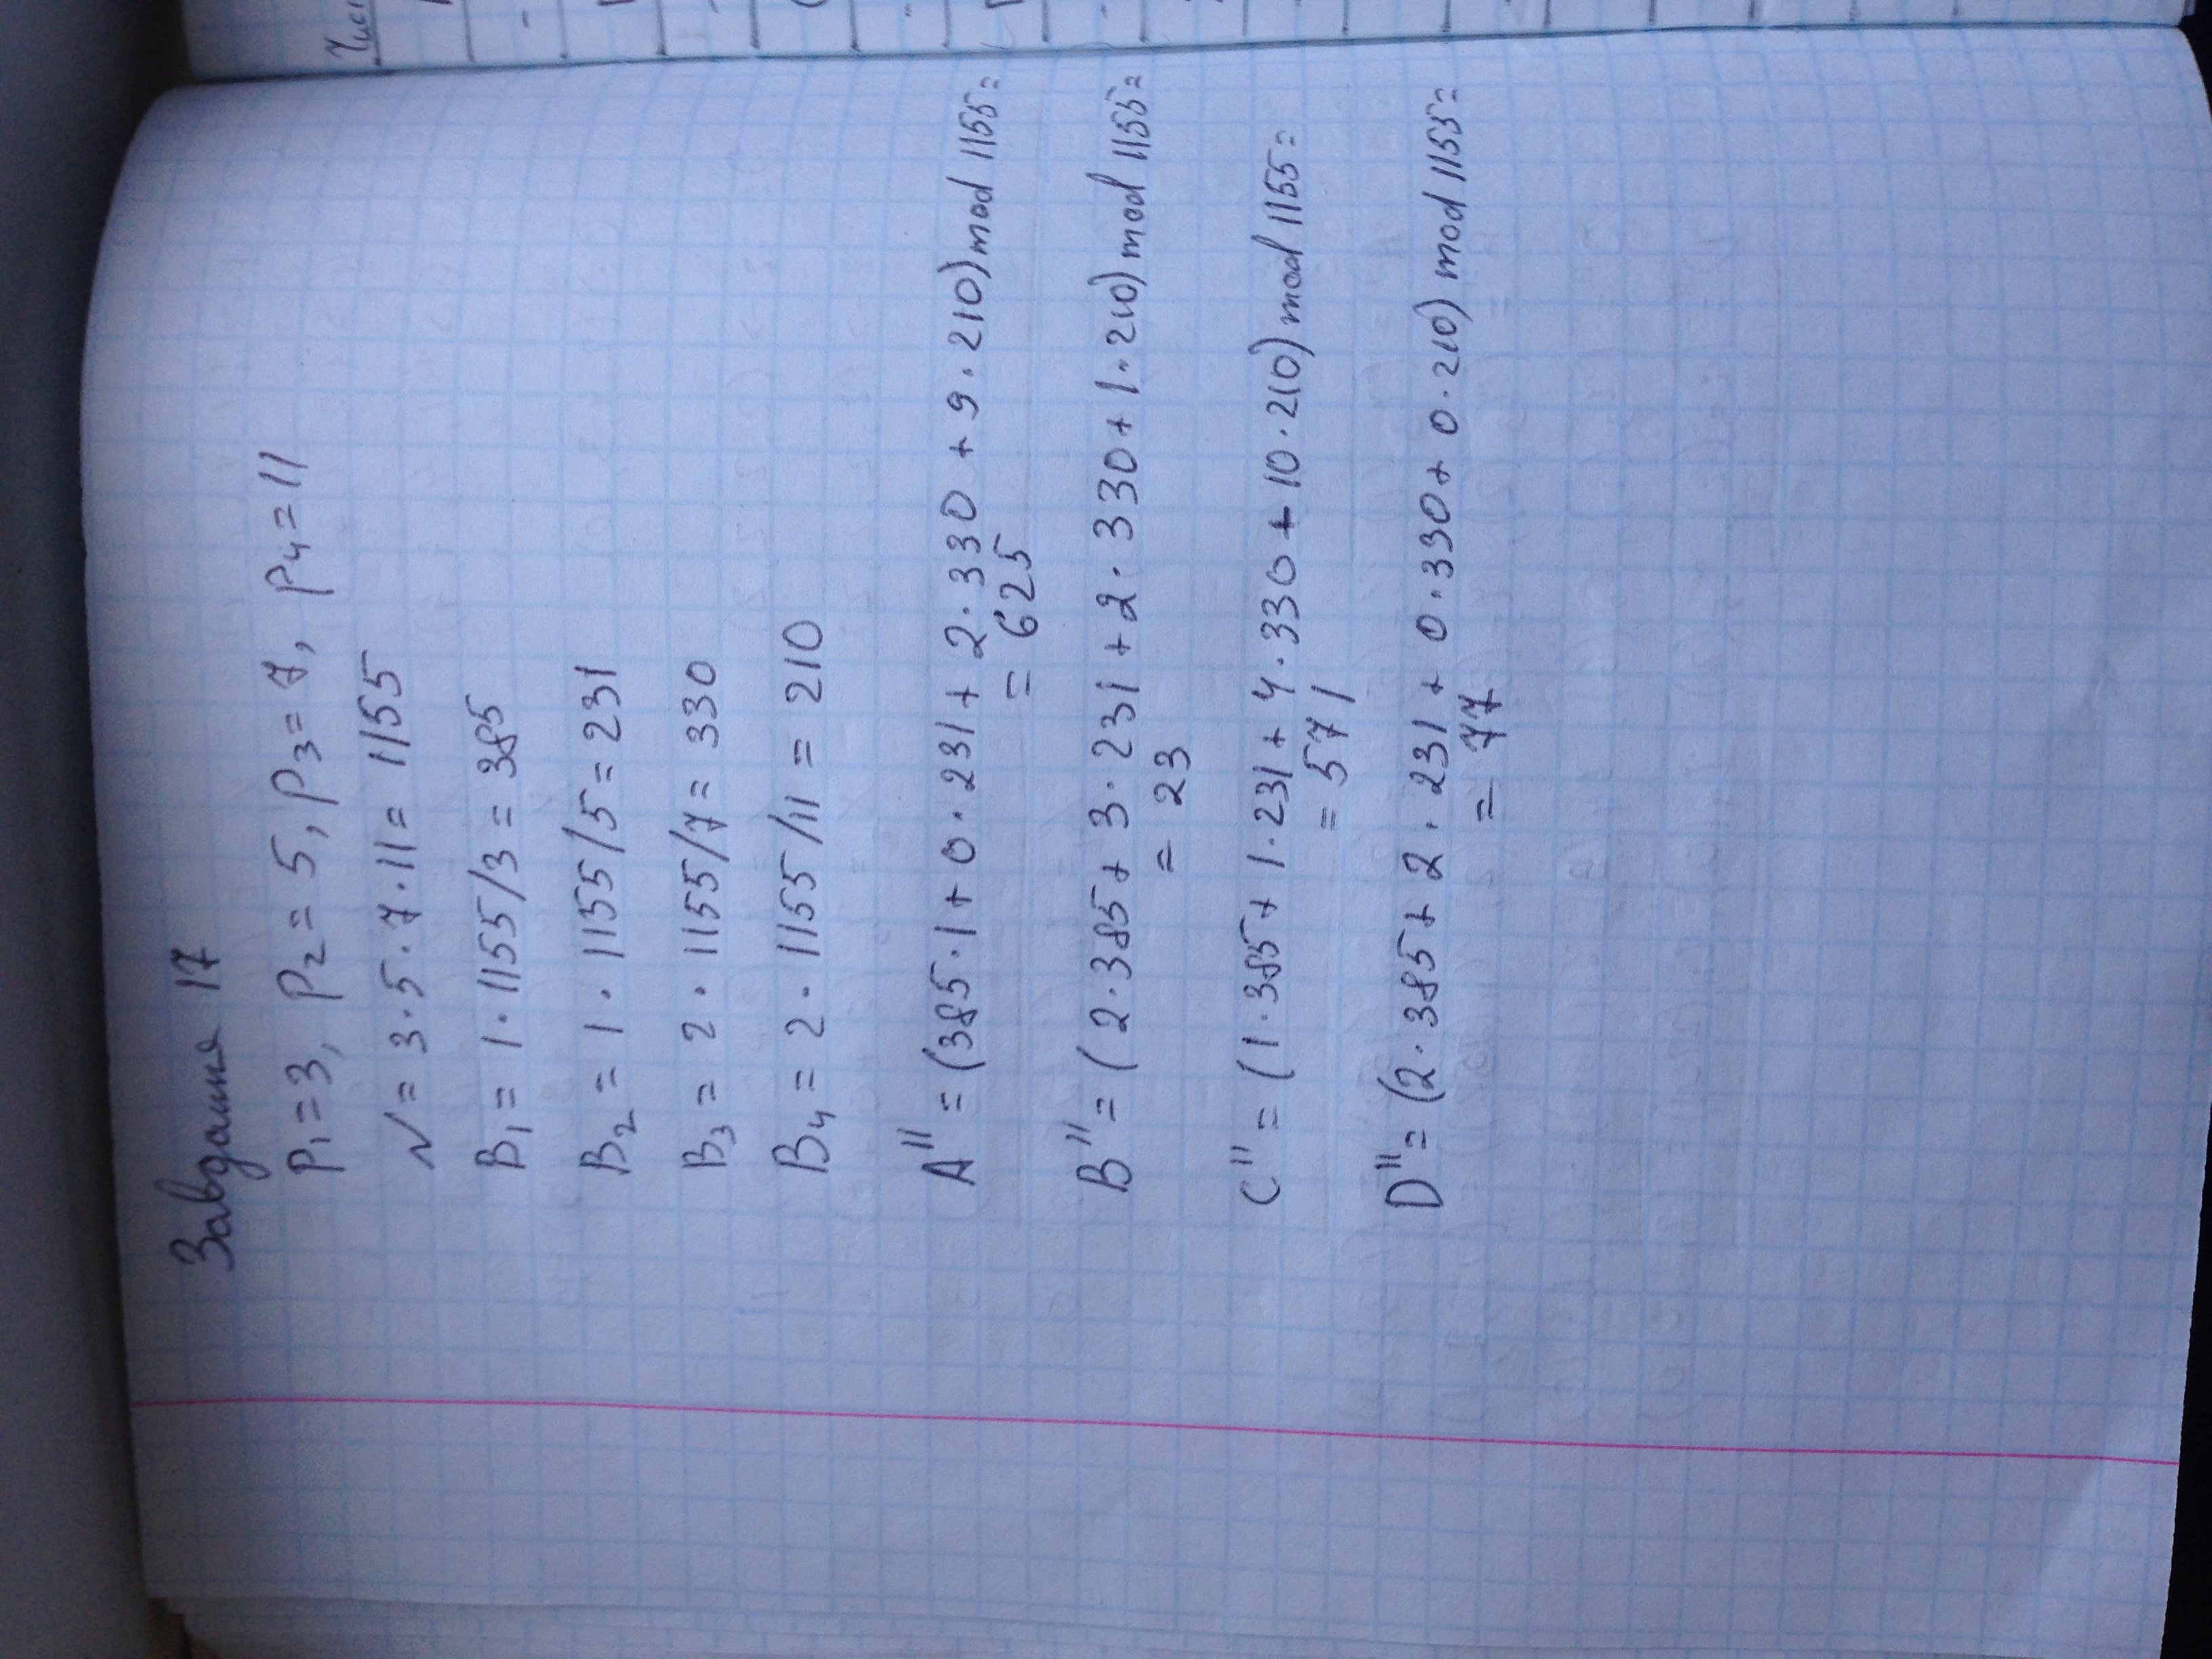 Завдання 17
p₁ = 3, p₂ = 5, p₃ = 7, p₄ = 11
N = 3 · 5 · 7 · 11 = 1155
B₁ = 1 · 1155/3 = 385
B₂ = 1 · 1155/5 = 231
B₃ = 2 · 1155/7 = 330
B₄ = 2 · 1155/11 = 210
A" = (385 · 1 + 0 · 231 + 2 · 330 + 9 · 210) mod 1155 =
= 625
B" = (2 · 385 + 3 · 231 + 2 · 330 + 1 · 210) mod 1155 =
= 23
C" = (1 · 385 + 1 · 231 + 4 · 330 + 10 · 210) mod 1155 =
= 571
D" = (2 · 385 + 2 · 231 + 0 · 330 + 0 · 210) mod 1155 =
= 77